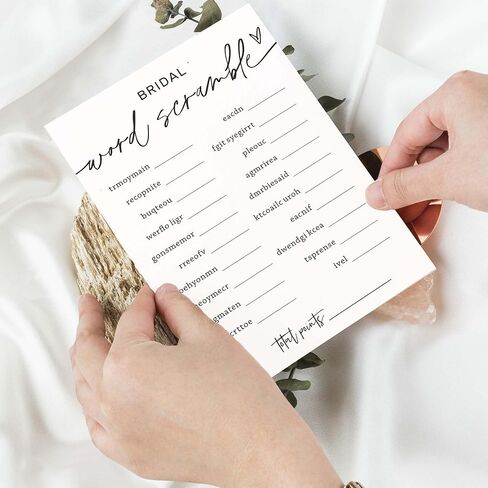 BRIDAL
word scramble
trmoymain
recopnite
buqteou
werflo ligr
gonsmemor
rreeofv
oehyonmn
neoymecr
gmaten
crttoe
eacdn
fgit syegirrt
pleouc
agmrirea
dmrbiesaid
ktcoailc uroh
eacnif
dwendgi kcea
tsprense
ivel
total points